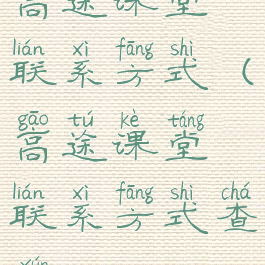 高途课堂
lián xì fāng shì
联系方式（
gāo tú kè táng
高途课堂
lián xì fāng shì chá
联系方式查
xún